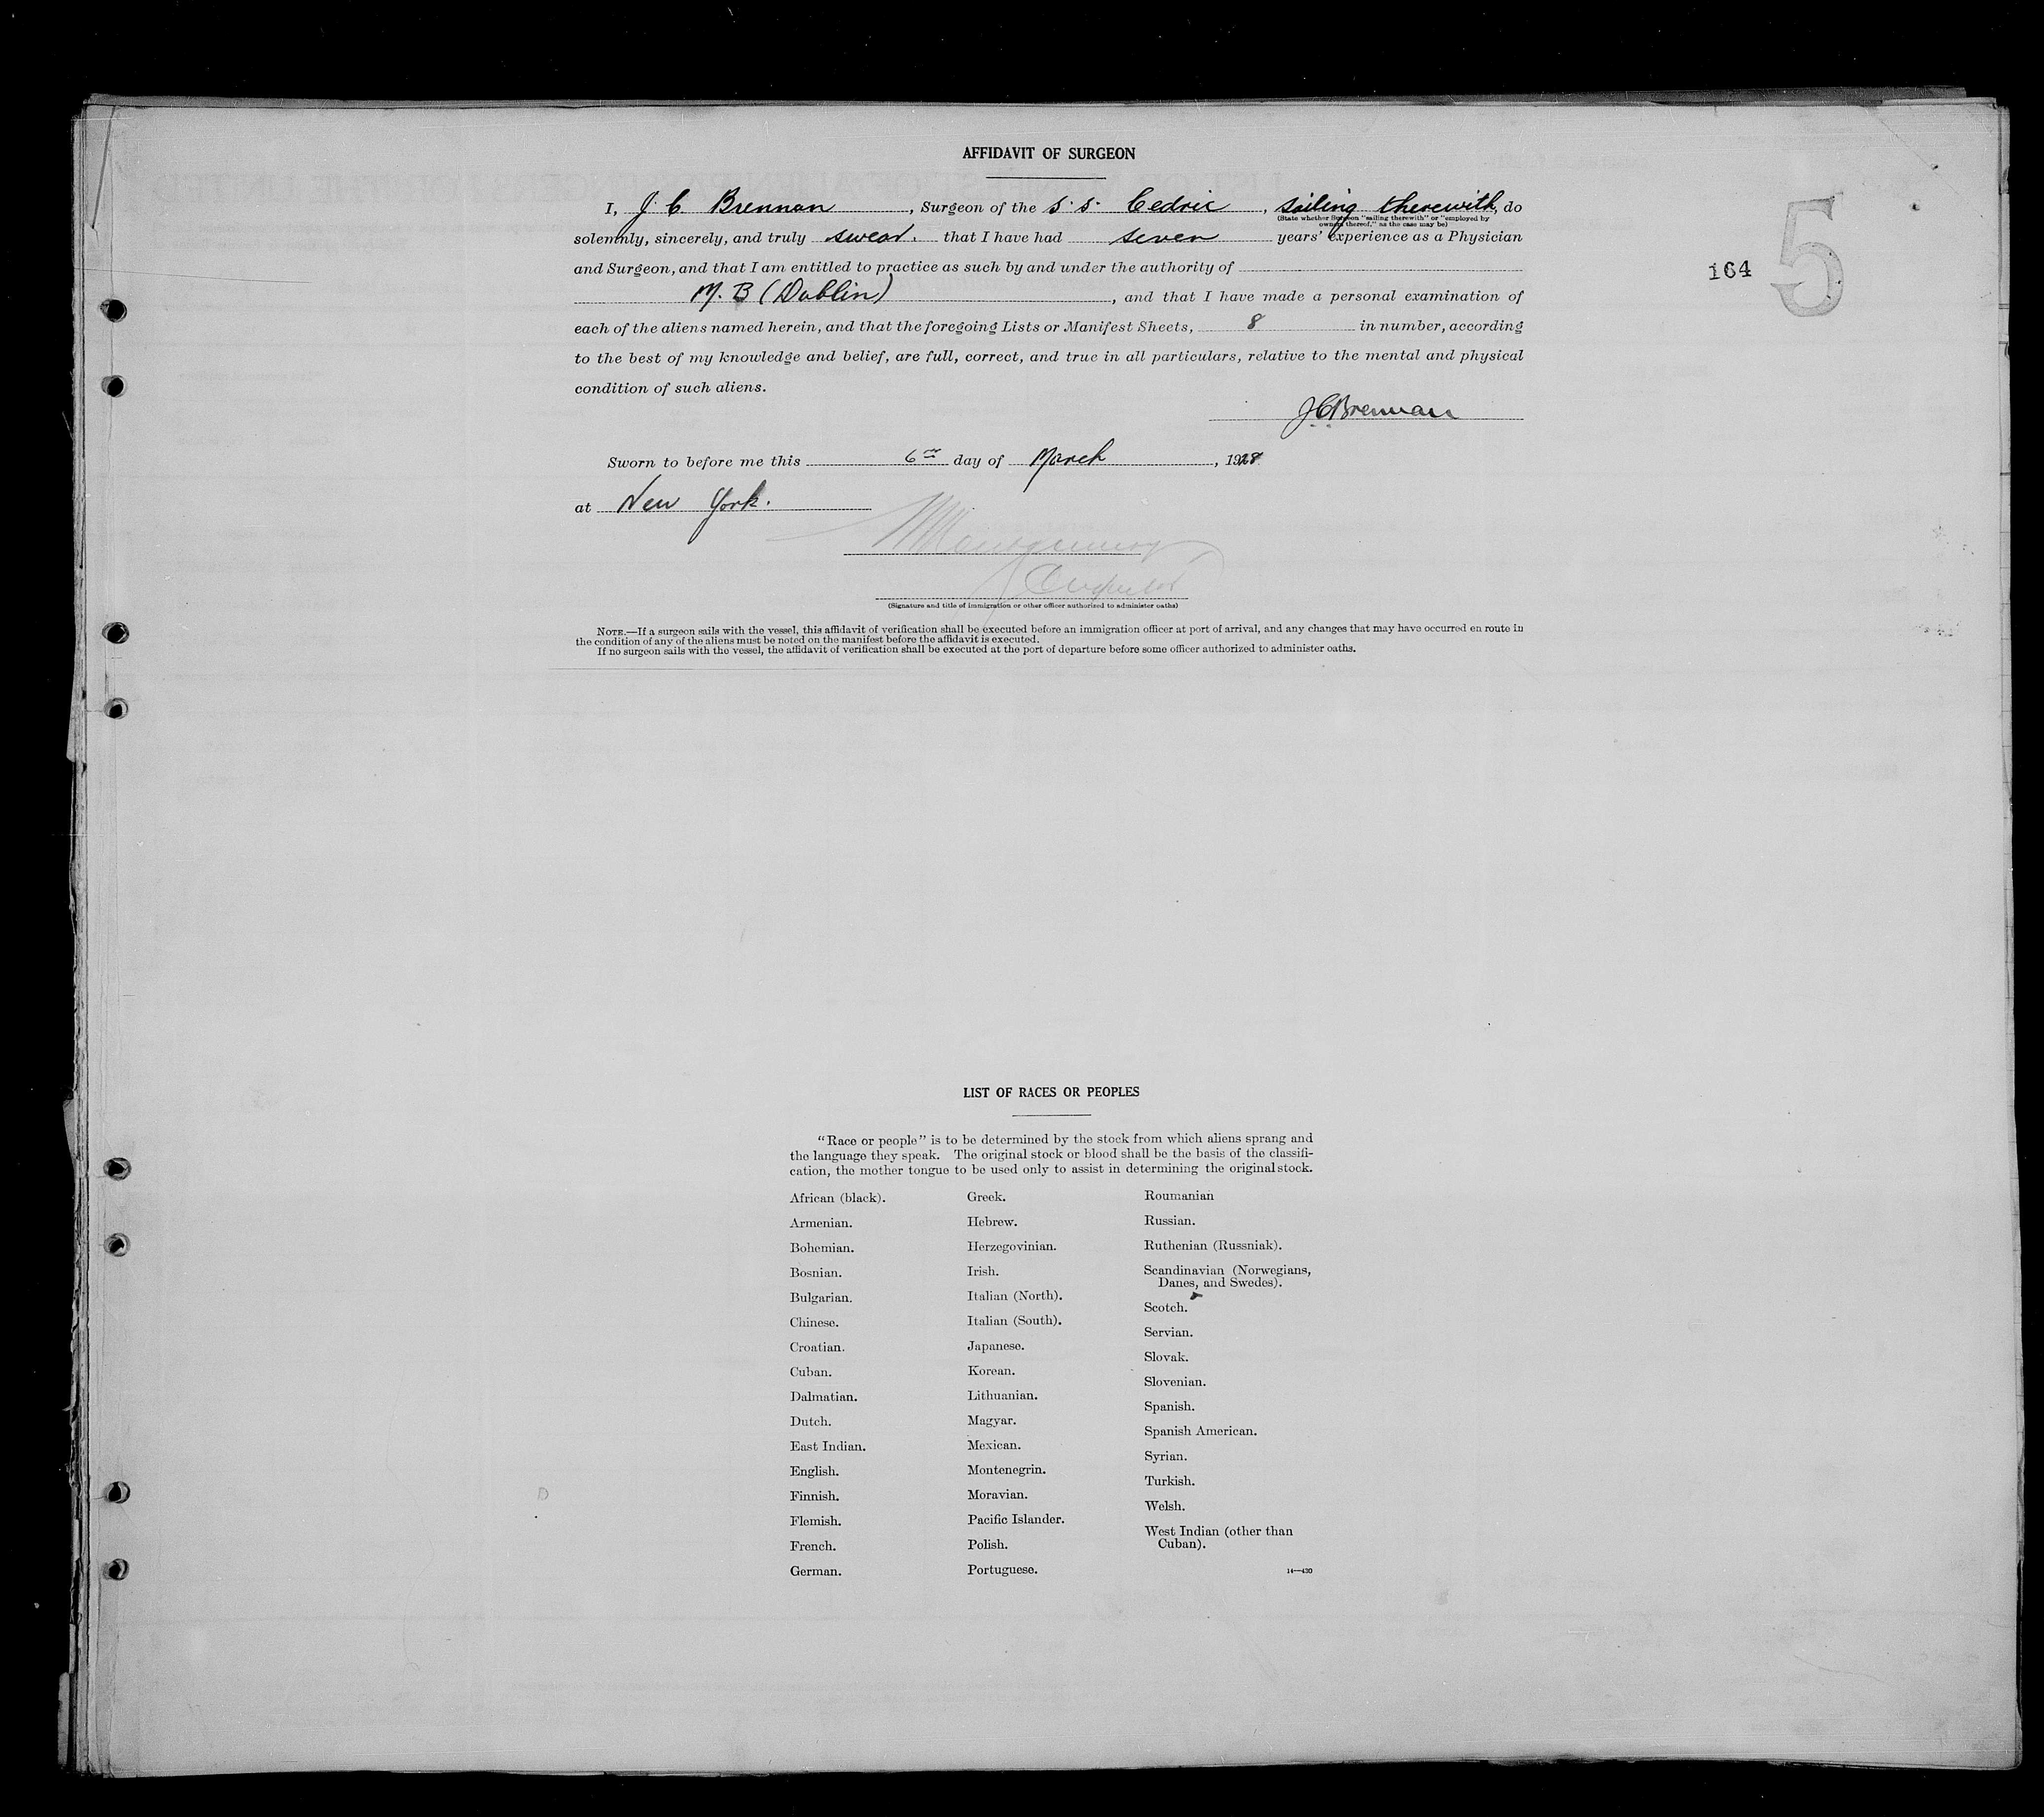 AFFIDAVIT OF SURGEON
I, J. C. Brennan, Surgeon of the S.S. Cedric, sailing therewith, do
(State whether Surgeon "sailing therewith" or "employed by
owners thereof," as the case may be)
solemnly, sincerely, and truly swear. that I have had seven years' experience as a Physician
and Surgeon, and that I am entitled to practice as such by and under the authority of
M. B (Dublin), and that I have made a personal examination of
each of the aliens named herein, and that the foregoing Lists or Manifest Sheets, 8 in number, according
to the best of my knowledge and belief, are full, correct, and true in all particulars, relative to the mental and physical
condition of such aliens.
164
5
J C Brennan
Sworn to before me this 6 day of March, 1928
at New York.
(Signature and title of immigration or other officer authorized to administer oaths)
NOTE.—If a surgeon sails with the vessel, this affidavit of verification shall be executed before an immigration officer at port of arrival, and any changes that may have occurred en route in
the condition of any of the aliens must be noted on the manifest before the affidavit is executed.
If no surgeon sails with the vessel, the affidavit of verification shall be executed at the port of departure before some officer authorized to administer oaths.
LIST OF RACES OR PEOPLES
"Race or people" is to be determined by the stock from which aliens sprang and
the language they speak. The original stock or blood shall be the basis of the classifi-
cation, the mother tongue to be used only to assist in determining the original stock.
African (black).
Armenian.
Bohemian.
Bosnian.
Bulgarian.
Chinese.
Croatian.
Cuban.
Dalmatian.
Dutch.
East Indian.
English.
Finnish.
Flemish.
French.
German.
Greek.
Hebrew.
Herzegovinian.
Irish.
Italian (North).
Italian (South).
Japanese.
Korean.
Lithuanian.
Magyar.
Mexican.
Montenegrin.
Moravian.
Pacific Islander.
Polish.
Portuguese.
Roumanian
Russian.
Ruthenian (Russniak).
Scandinavian (Norwegians,
Danes, and Swedes).
Scotch.
Servian.
Slovak.
Slovenian.
Spanish.
Spanish American.
Syrian.
Turkish.
Welsh.
West Indian (other than
Cuban).
14—430